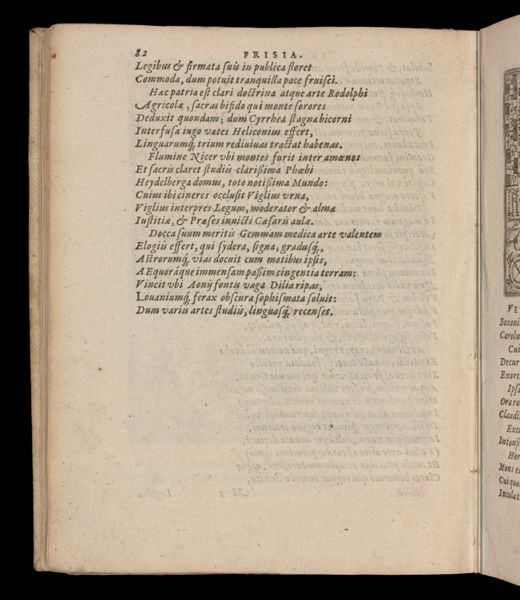 82 FRISIA.
Legibus & firmata suis in publica floret
Commoda, dum potuit tranquilla pace fruisci.
Hæc patria est clari doctrina atque arte Rodolphi
Agricolæ, sacras bifido qui monte sorores
Deduxit quondam; dum Cyrrhea stagna bicorni
Interfusa iugo vates Heliconius effert,
Linguarumq́ trium rediuiuas tractat habenas.
Flumine Nicer vbi montes furit inter amœnos
Et sacris claret studiis clarißima Phœbi
Heydelberga domus, toto notißima Mundo:
Cuius ibi cineres occlusit Viglius vrna,
Viglius interpres Legum, moderator & alma
Iustitiæ, & Præses inuicti Cæsaris aulæ.
Docca suum meritis Gemmam medica arte valentem
Elogiis effert, qui sydera, signa, gradusq́,
Astrorumq́ vias docuit cum motibus ipsis,
AEquoráque immensam paßim cingentia terram:
Vincit vbi Aonij fontis vaga Dilia ripas,
Louaniumq́ ferax obscura sophismata soluit:
Dum variis artes studiis, linguasq́ recenses.
Saxoni
Carolu
Cui
Decur
Exori
Ipsa
Orarum
Claudi
Exte
Intons
Hor
Mons e
Cui quo
Incolat